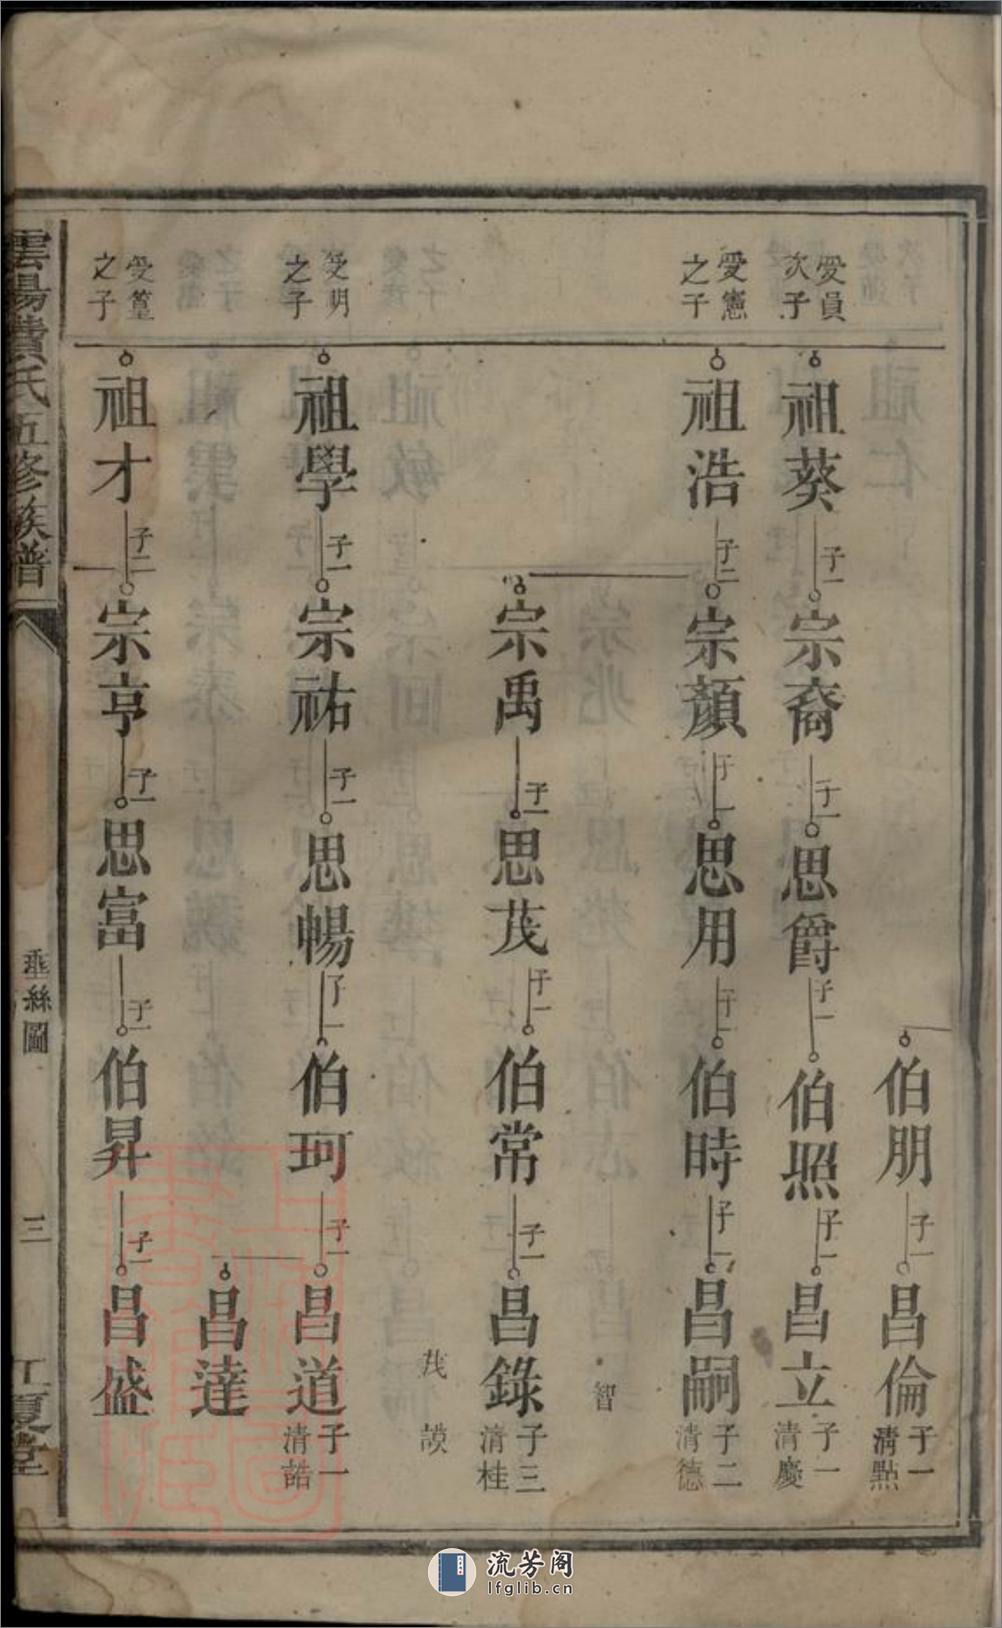 伯朋 子一 昌倫 子一 清點
愛員次子 祖葵 子一 宗裔 子一 思爵 子一 伯照 子一 昌立 子一 清慶
愛憲之子 祖浩 子二 宗顏 子一 思用 子一 伯時 子一 昌嗣 子二 清德
智
宗禹 子一 思茂 子一 伯常 子一 昌錄 子三 清桂
茂 謨
愛明之子 祖學 子一 宗祐 子一 思暢 子一 伯珂 子一 昌道 子一 清誥
昌達
愛篁之子 祖才 子二 宗亨 子一 思富 子一 伯昇 子一 昌盛
雲陽黄氏五修族譜
垂絲圖
三
江夏堂
流芳阁
lfglib.cn